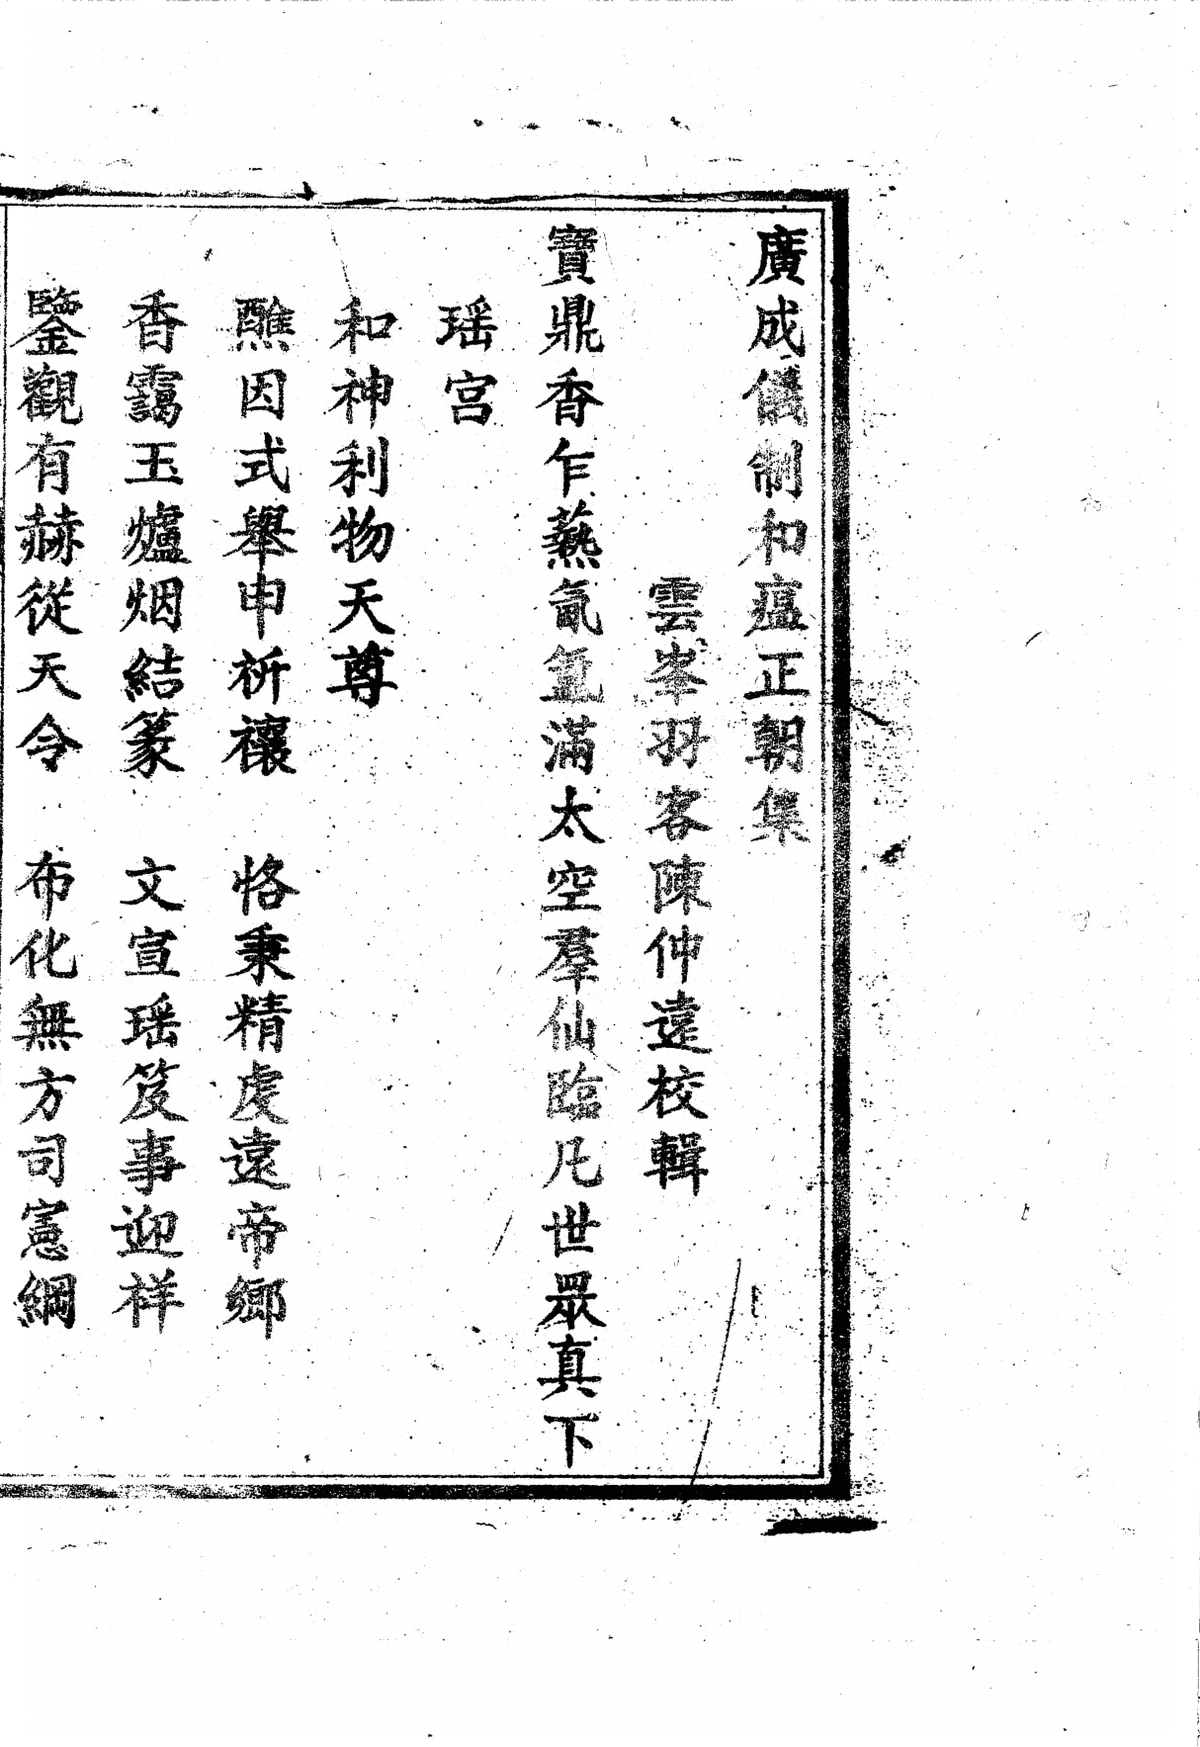 廣成儀制和瘟正朝集
雲峯羽客陳仲遠校輯
寶鼎香乍爇氤氳滿太空羣仙臨凡世眾真下
瑶宫
和神利物天尊
醮因式舉申祈禳　恪秉精虔遠帝鄉
香靄玉爐烟結篆　文宣瑶笈事迎祥
鑒觀有赫從天令　布化無方司憲綱